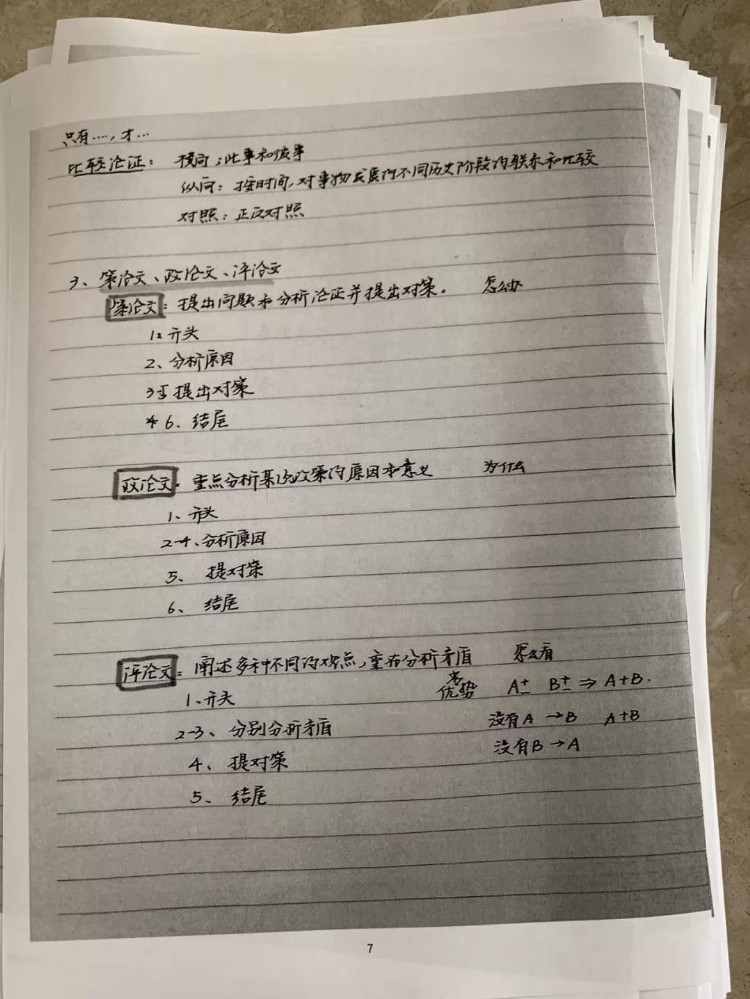 只有……,才…
比较论证: 横向:此事和彼事
纵向:按时间,对事物发展的不同历史阶段的联系和比较
对照:正反对照
3、策论文、政论文、评论文
策论文:提出问题和分析论证并提出对策。 怎么办
1、开头
2、分析原因
3-5 提出对策
6、结尾
政论文:重点分析某次政策的原因和意义 为什么
1、开头
2-4、分析原因
5、提对策
6、结尾
评论文:阐述多种不同的观点,重在分析矛盾 怎么看
1、开头 劣 优势 A± B± ⇒ A+B.
2-3、分别分析矛盾 没有A → B A+B
4、提对策 没有B → A
5、结尾
7